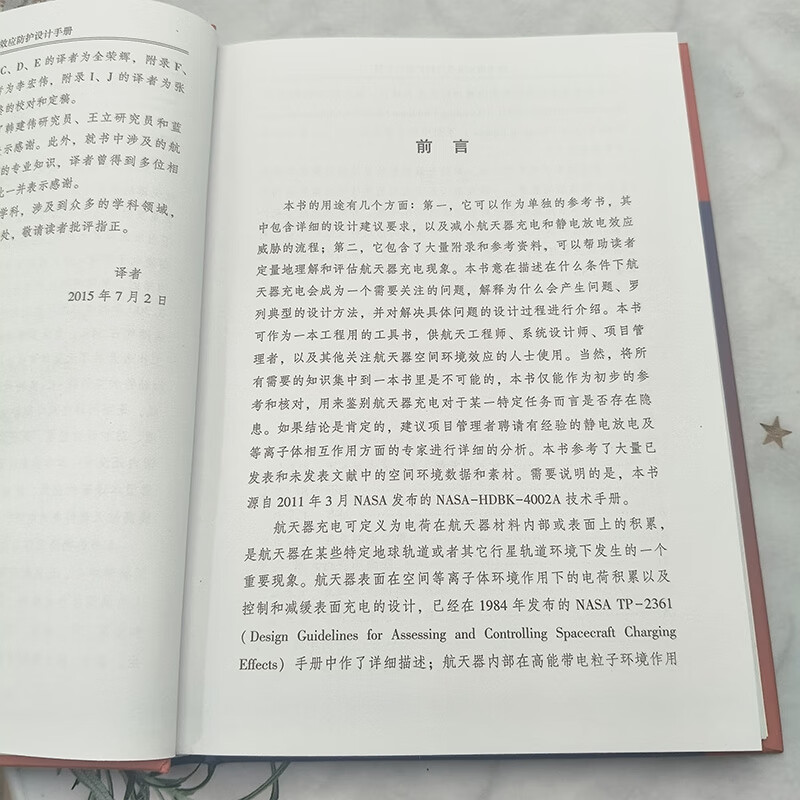 效应防护设计手册
C、D、E的译者为全荣辉，附录F、
者为李宏伟，附录I、J的译者为张
的校对和定稿。
了韩建伟研究员、王立研究员和蓝
表示感谢。此外，就书中涉及的航
的专业知识，译者曾得到多位相
此一并表示感谢。
学科，涉及到众多的学科领域，
处，敬请读者批评指正。
译者
2015年7月2日
前 言
本书的用途有几个方面：第一，它可以作为单独的参考书，其
中包含详细的设计建议要求，以及减小航天器充电和静电放电效应
威胁的流程；第二，它包含了大量附录和参考资料，可以帮助读者
定量地理解和评估航天器充电现象。本书意在描述在什么条件下航
天器充电会成为一个需要关注的问题，解释为什么会产生问题、罗
列典型的设计方法，并对解决具体问题的设计过程进行介绍。本书
可作为一本工程用的工具书，供航天工程师、系统设计师、项目管
理者，以及其他关注航天器空间环境效应的人士使用。当然，将所
有需要的知识集中到一本书里是不可能的，本书仅能作为初步的参
考和核对，用来鉴别航天器充电对于某一特定任务而言是否存在隐
患。如果结论是肯定的，建议项目管理者聘请有经验的静电放电及
等离子体相互作用方面的专家进行详细的分析。本书参考了大量已
发表和未发表文献中的空间环境数据和素材。需要说明的是，本书
源自2011年3月NASA发布的NASA-HDBK-4002A技术手册。
航天器充电可定义为电荷在航天器材料内部或表面上的积累，
是航天器在某些特定地球轨道或者其它行星轨道环境下发生的一个
重要现象。航天器表面在空间等离子体环境作用下的电荷积累以及
控制和减缓表面充电的设计，已经在1984年发布的NASA TP-2361
（Design Guidelines for Assessing and Controlling Spacecraft Charging
Effects）手册中作了详细描述；航天器内部在高能带电粒子环境作用